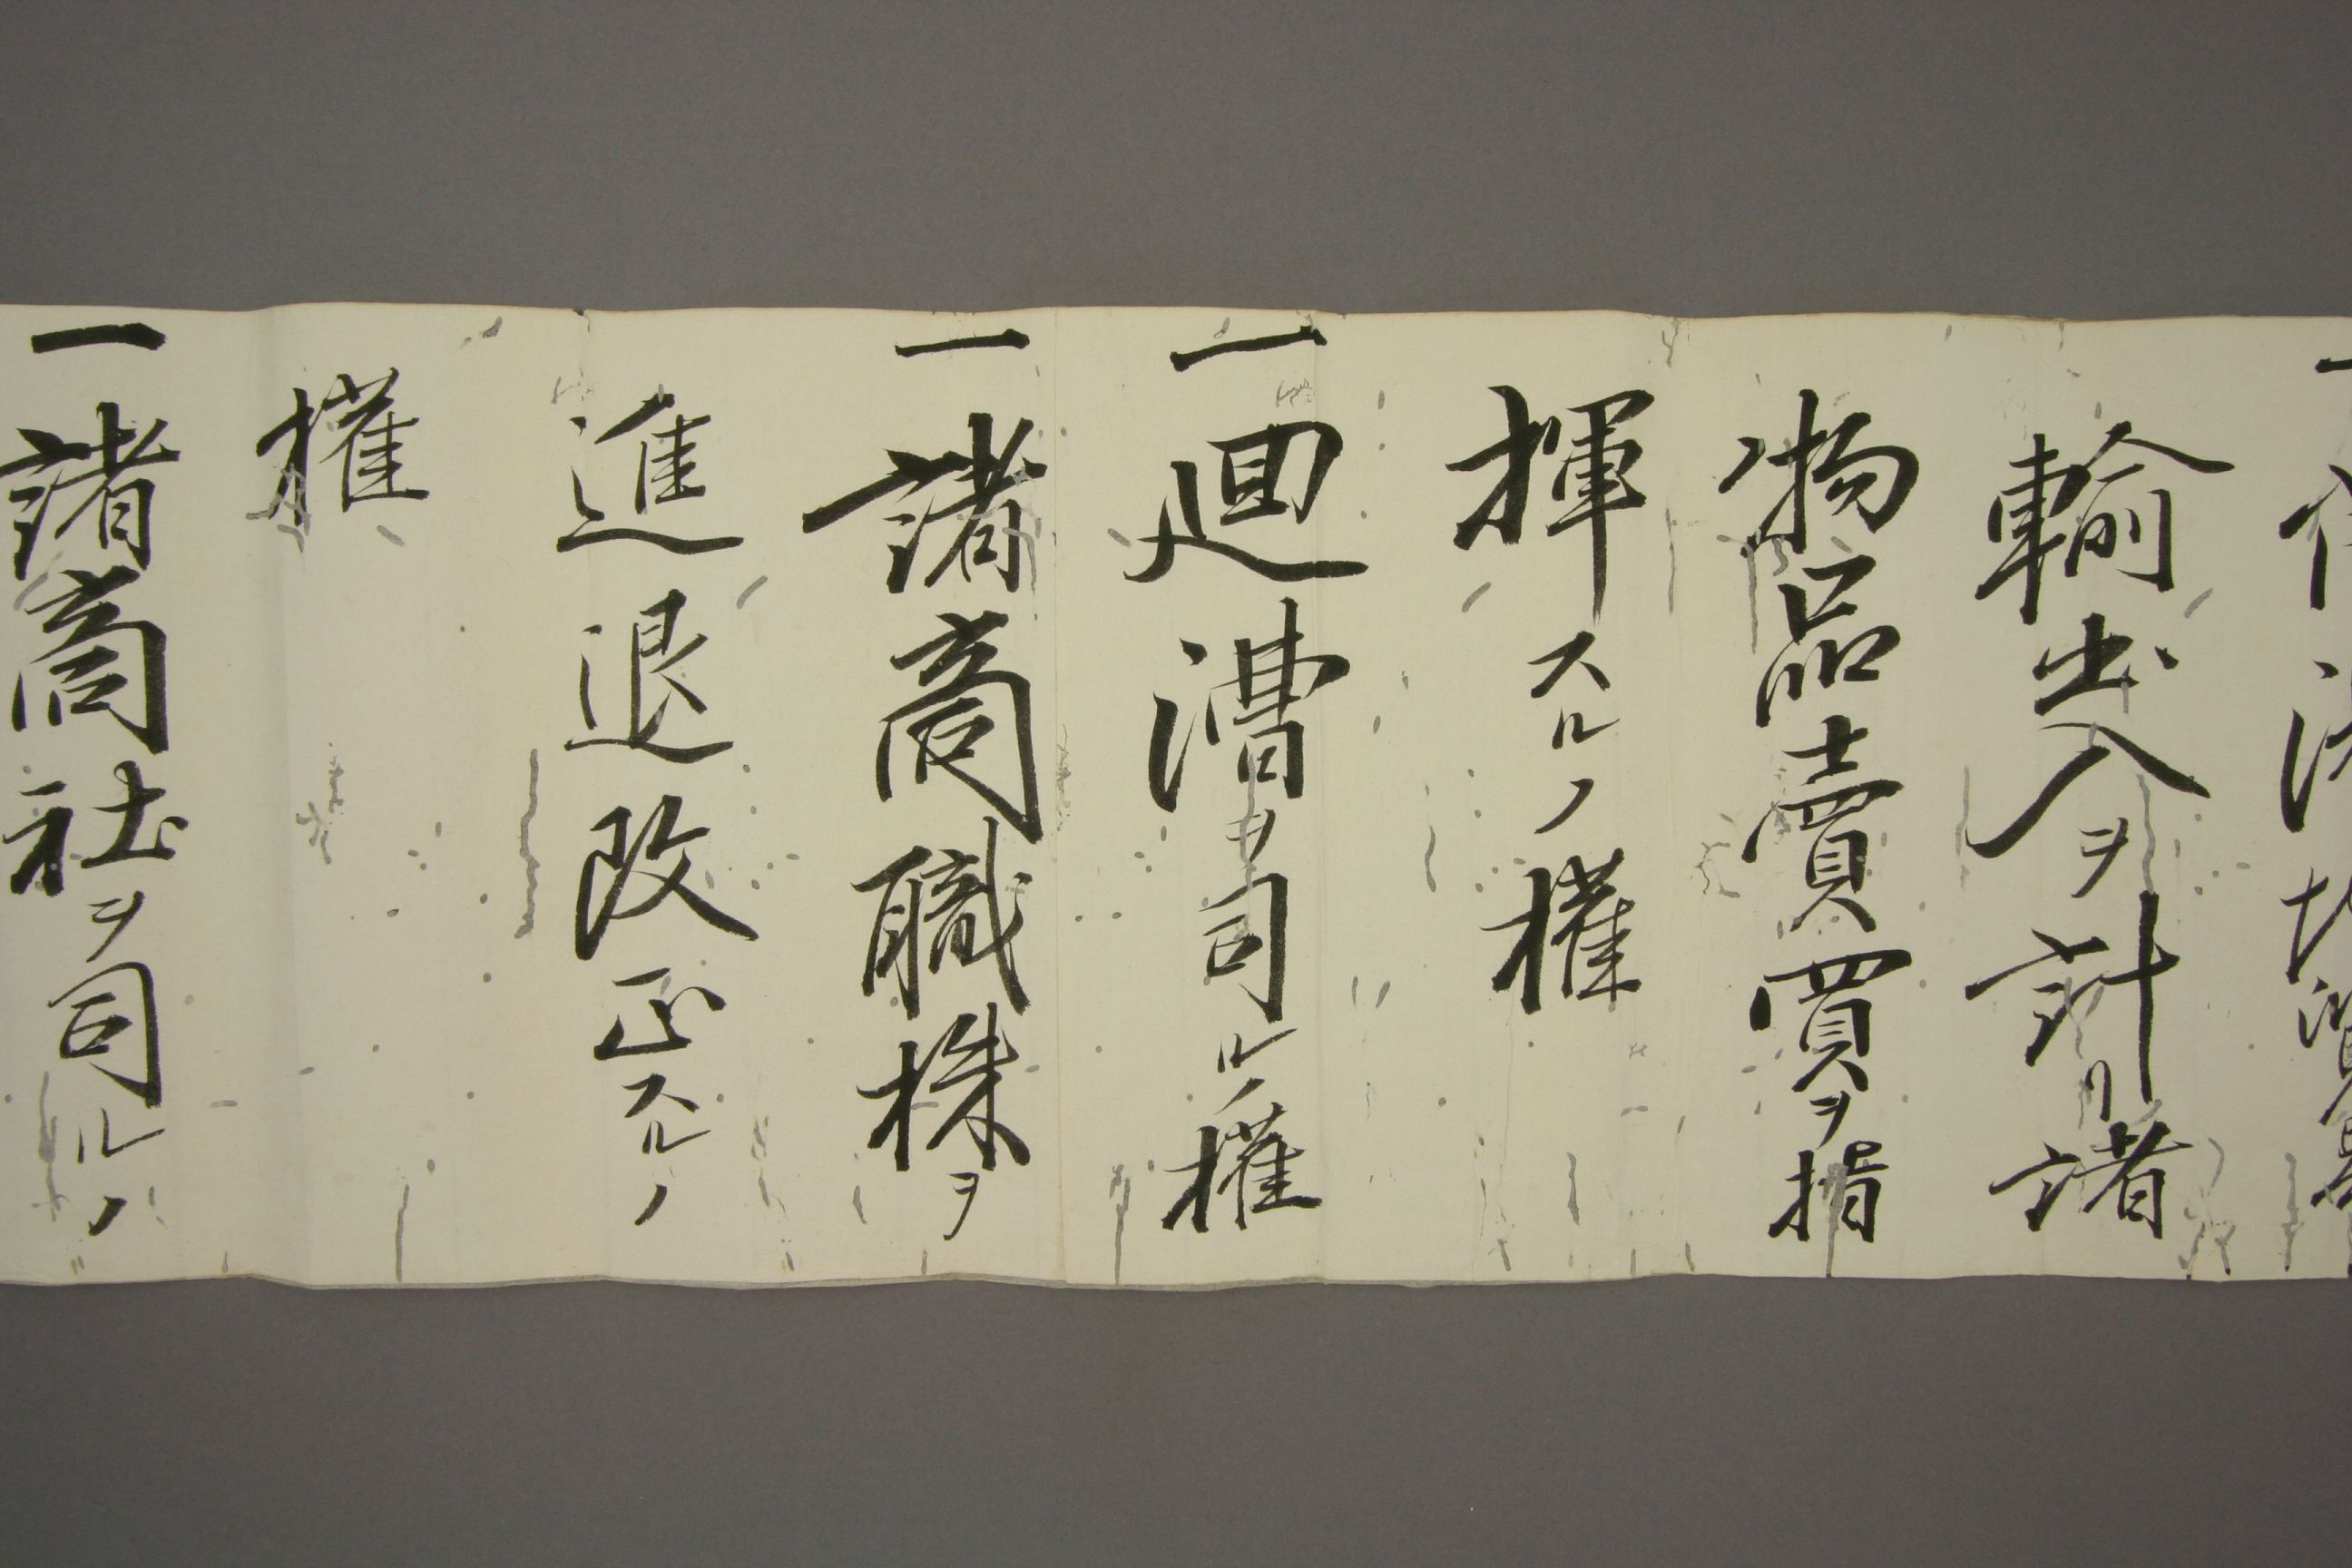 輸出入ヲ計リ諸
物品賣買ヲ指
揮スルノ權
一廻漕ヲ司ルノ權
一諸商職株ヲ
進退改正スルノ
權
一諸商社ヲ司ルノ